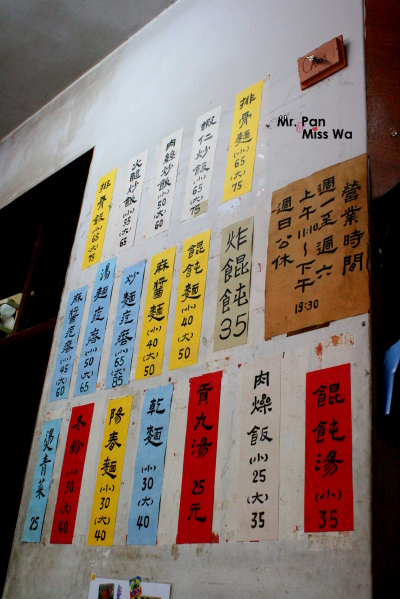 Mr. Pan
Miss Wa
排骨麵(小)65(大)75
蝦仁炒飯(小)65(大)75
肉絲炒飯(小)50(大)60
火腿炒飯(小)55(大)65
排骨飯(小)65(大)75
營業時間
週一至週六
上午11:10~下午19:30
週日公休
炸餛飩35
餛飩麵(小)40(大)50
麻醬麵(小)40(大)50
炒麵疙瘩(小)65(大)85
湯麵疙瘩(小)50(大)65
麻醬疙瘩(小)45(大)60
餛飩湯(小)35
肉燥飯(小)25(大)35
貢丸湯25元
乾麵(小)30(大)40
陽春麵(小)30(大)40
冬粉(小)30(大)40
燙青菜25